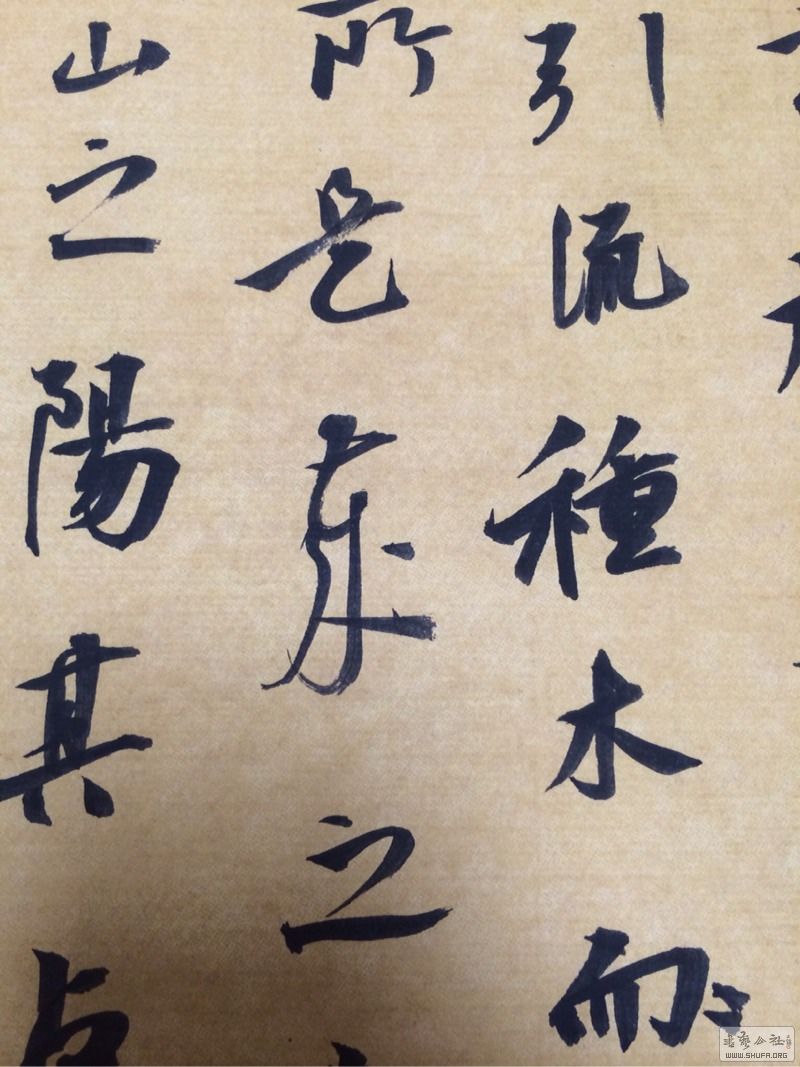 引流種木而
所是 之
山之陽其
書藝公社
WWW.SHUFA.ORG